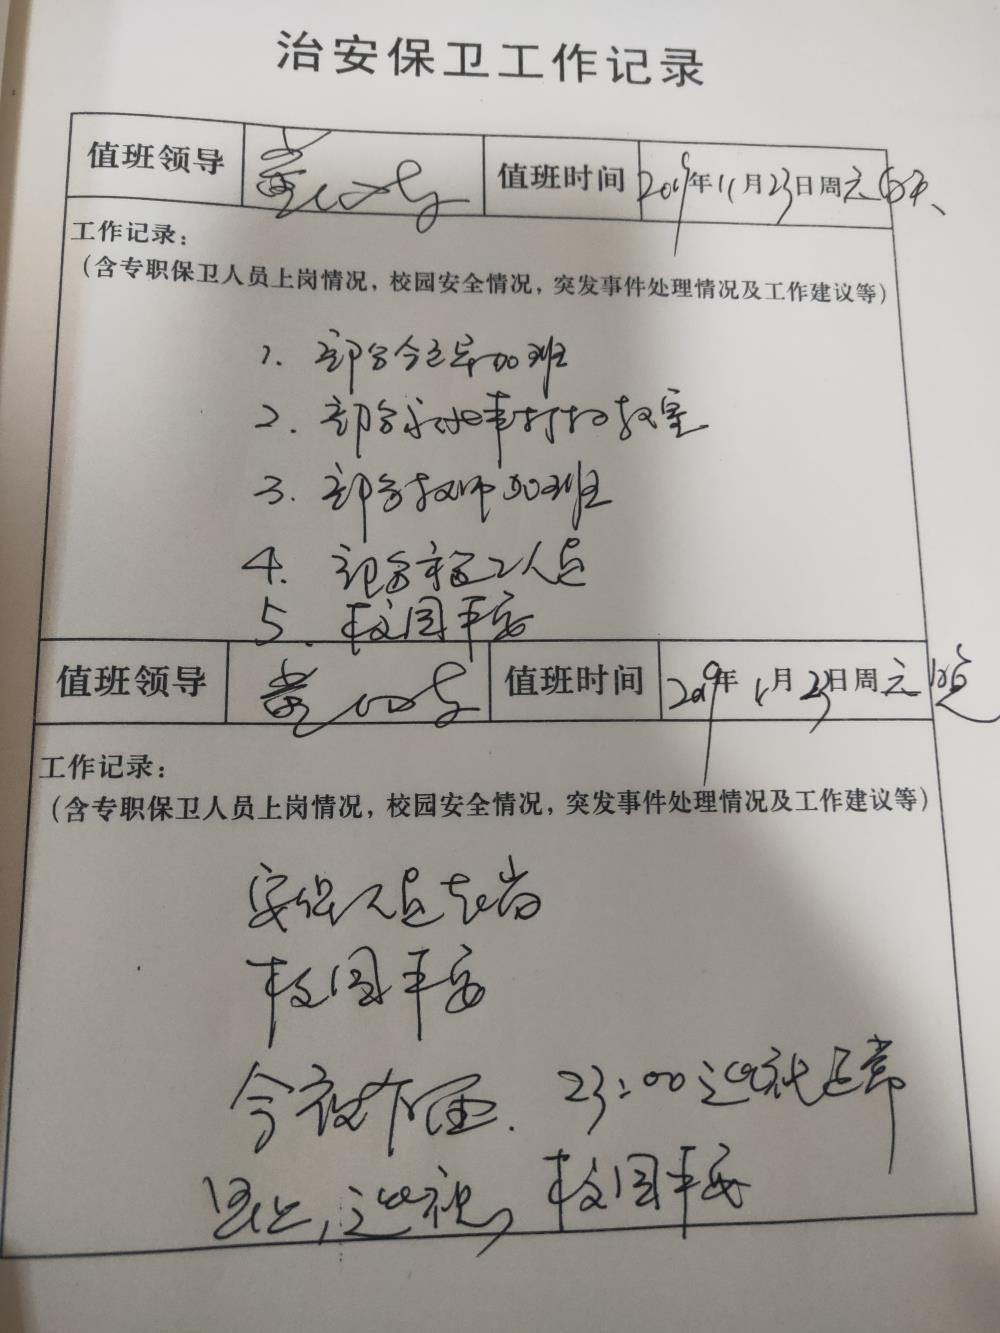 治安保卫工作记录
值班领导 值班时间 2019年11月23日周六白天
工作记录：
（含专职保卫人员上岗情况，校园安全情况，突发事件处理情况及工作建议等）
1. 部分领导加班
2. 部分打扫教室
3. 部分教师加班
4. 部分人员
5. 校园平安
值班领导 值班时间 2019年11月23日周六晚
工作记录：
（含专职保卫人员上岗情况，校园安全情况，突发事件处理情况及工作建议等）
安保人员在岗
校园平安
今夜下雨. 23:00巡视正常
早上, 巡视, 校园平安